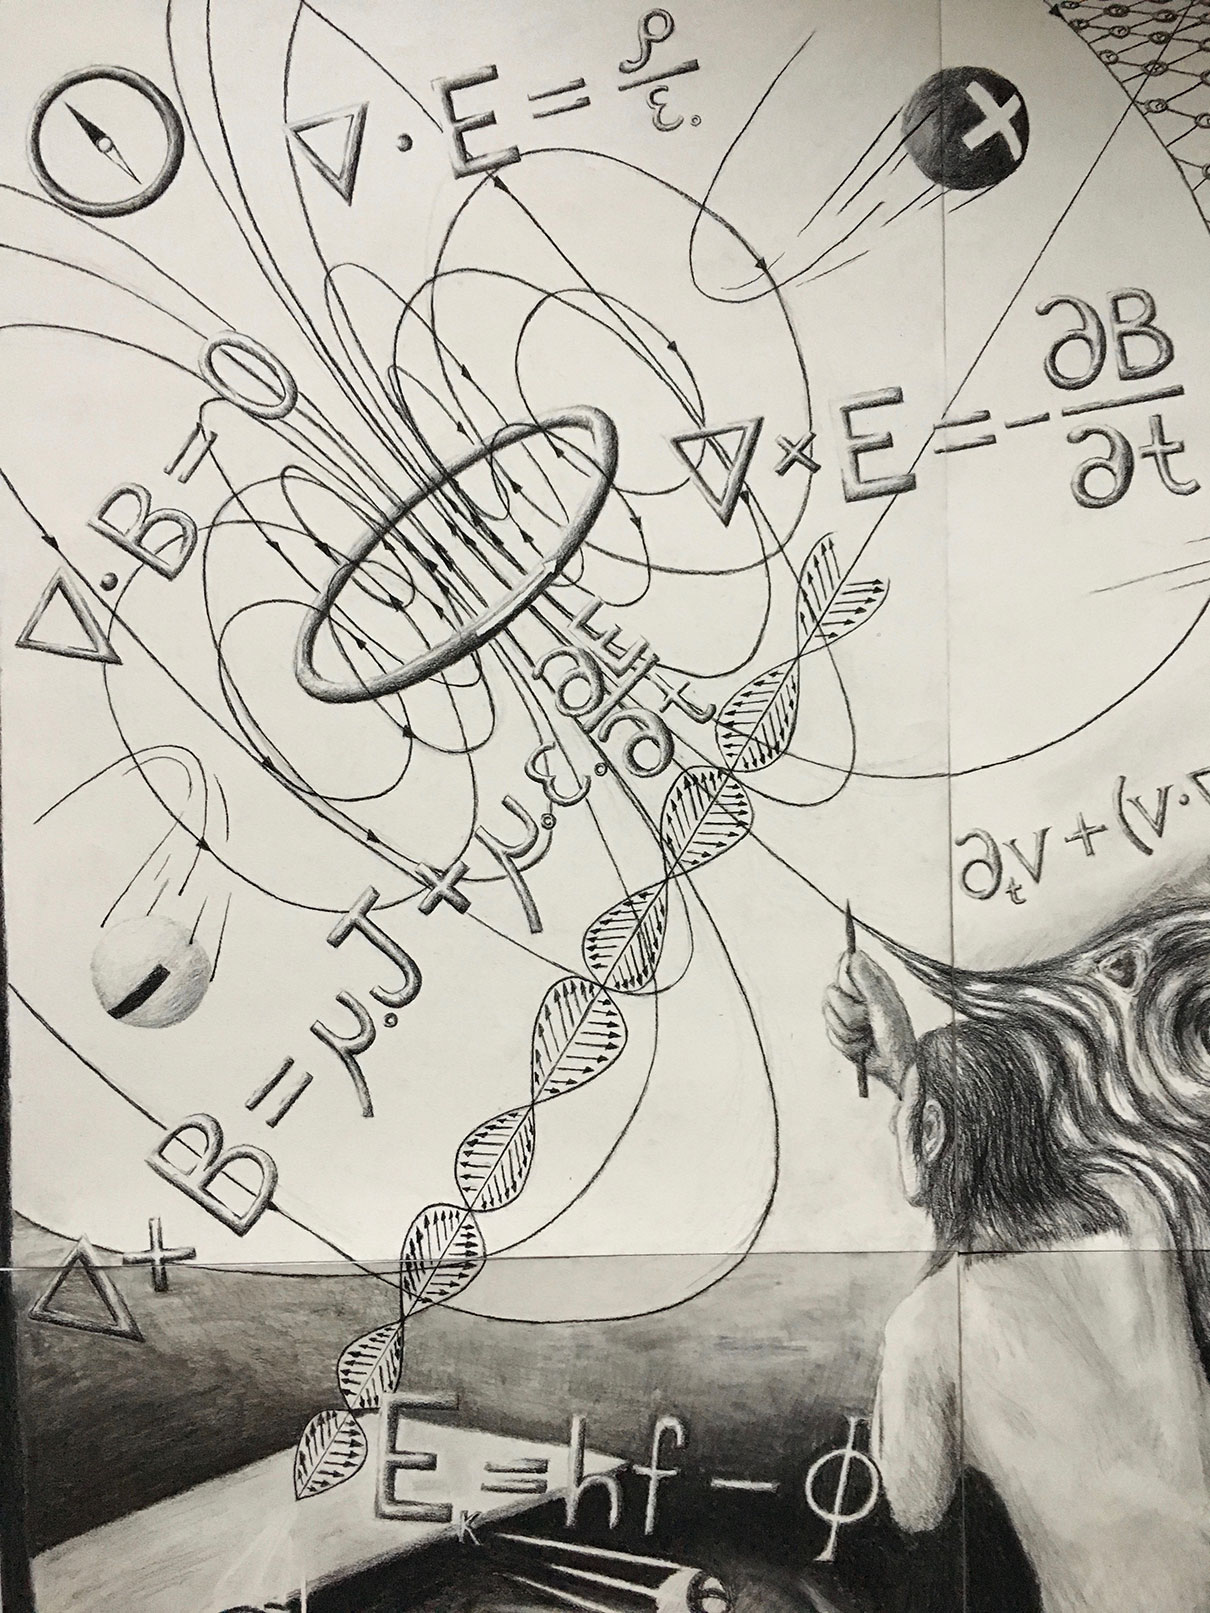 ∇ · E = ρ/ε₀
+
∇ · B = 0
∇ × E = - ∂B/∂t
∇ × B = μ₀J + μ₀ε₀ ∂E/∂t
∂ₜv + (v · ∇
−
Eₖ = hf − ϕ